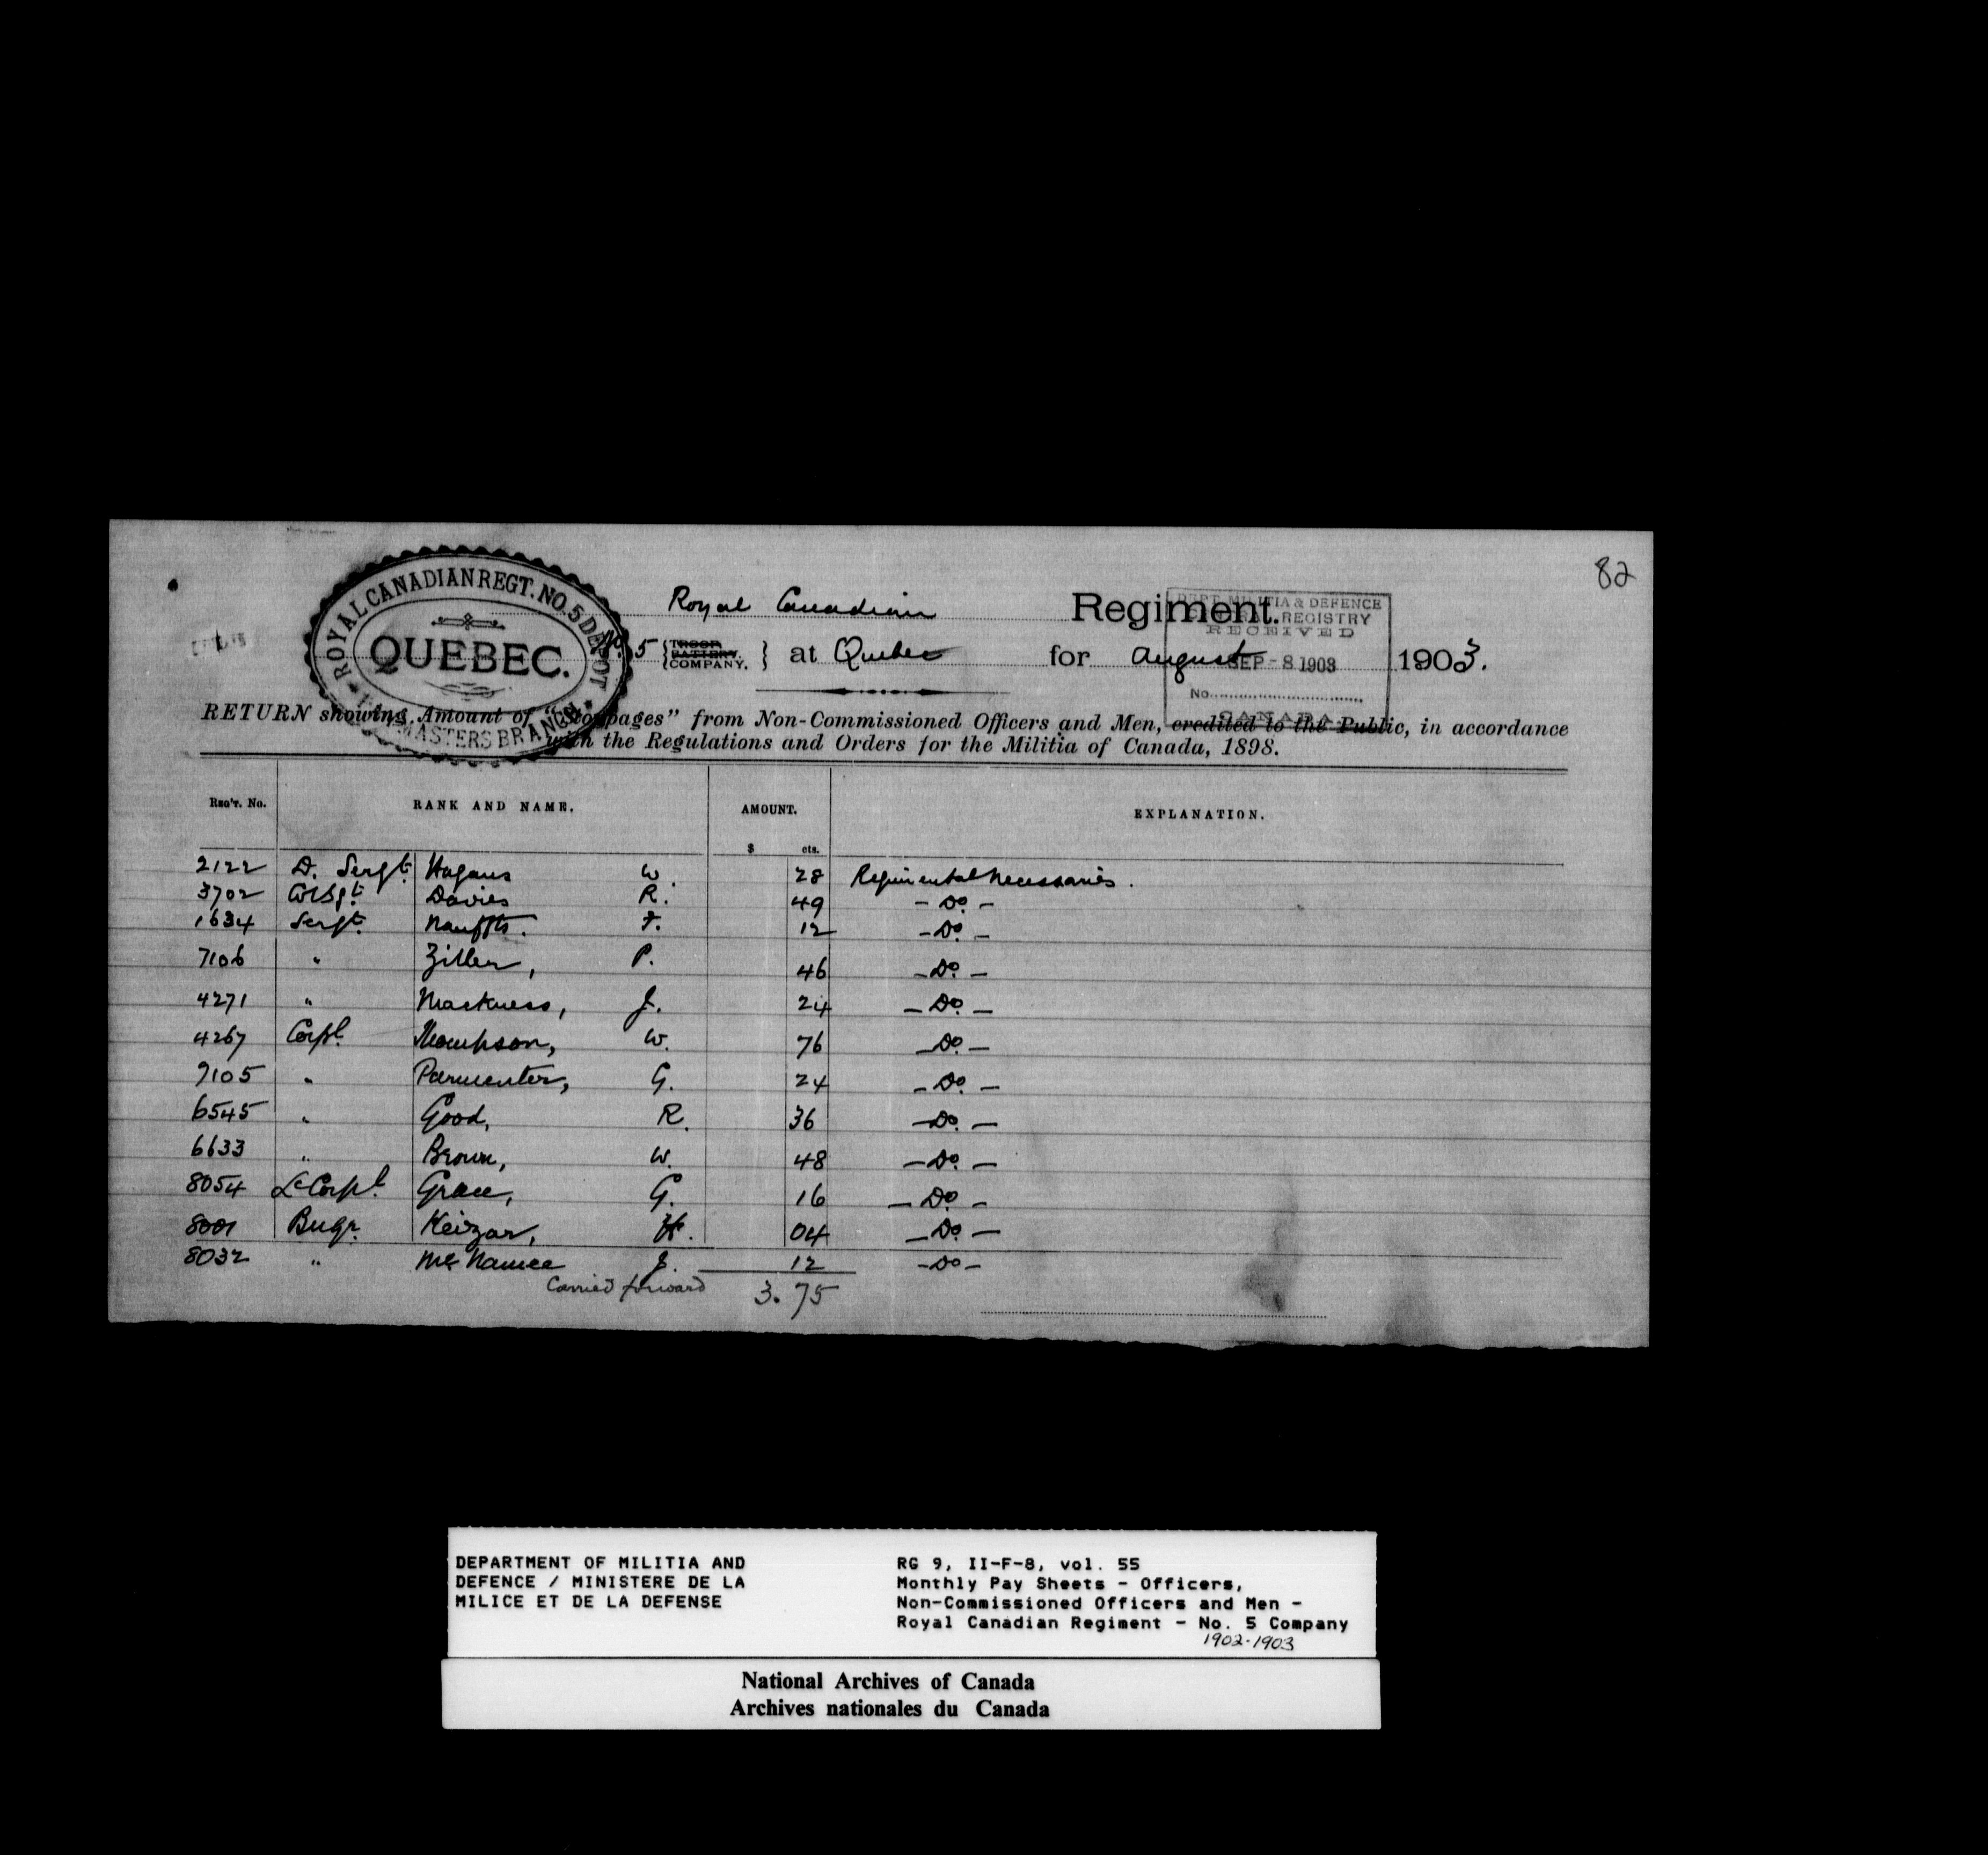 82
ROYAL CANADIAN REGT. NO. 5 DEPOT
QUEBEC.
MASTERS BRANCH
Royal Canadian Regiment.
DEPT. MILITIA & DEFENCE
REGISTRY
RECEIVED
SEP - 8 1903
No.
CANADA
No. 5 { TROOP, BATTERY, COMPANY, } at Quebec for August 1903.
RETURN showing Amount of "Stoppages" from Non-Commissioned Officers and Men, credited to the Public, in accordance
with the Regulations and Orders for the Militia of Canada, 1898.
REG'T. No. RANK AND NAME. AMOUNT. EXPLANATION.
$ cts.
2122 D. Sergt. Hagans W. 28 Regimental Necessaries.
3702 Col Sgt. Davies R. 49 - Do. -
1634 Sergt. Nauffts. F. 12 - Do. -
7106 " Ziller, P. 46 - Do. -
4271 " Mackness, J. 24 - Do. -
4267 Corpl. Thompson, W. 76 - Do. -
9105 " Parmenter, G. 24 - Do. -
6545 " Good, R. 36 - Do. -
6633 " Brown, W. 48 - Do. -
8054 L Corpl. Grace, G. 16 - Do. -
8001 Bugr. Keizar, H. 04 - Do. -
8032 " McNamee J. 12 - Do -
Carried forward 3.75
DEPARTMENT OF MILITIA AND
DEFENCE / MINISTERE DE LA
MILICE ET DE LA DEFENSE
RG 9, II-F-8, vol. 55
Monthly Pay Sheets - Officers,
Non-Commissioned Officers and Men -
Royal Canadian Regiment - No. 5 Company
1902-1903
National Archives of Canada
Archives nationales du Canada